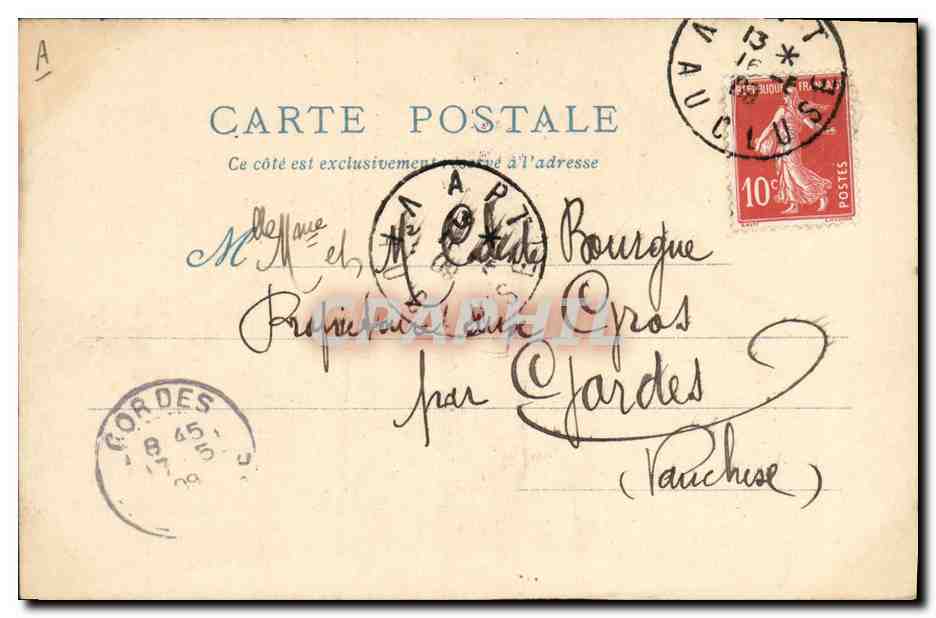 A
CARTE POSTALE
Ce côté est exclusivement réservé à l'adresse
APT
VAUCLUSE
13 *
16
RÉPUBLIQUE FRANÇAISE
10c
POSTES
APT
*
M lle Mme et Mr Bourgne
Propriétaire aux Gros
par Gordes
(Vaucluse)
GORDES
8 45
17 5
09
CPAPHIL